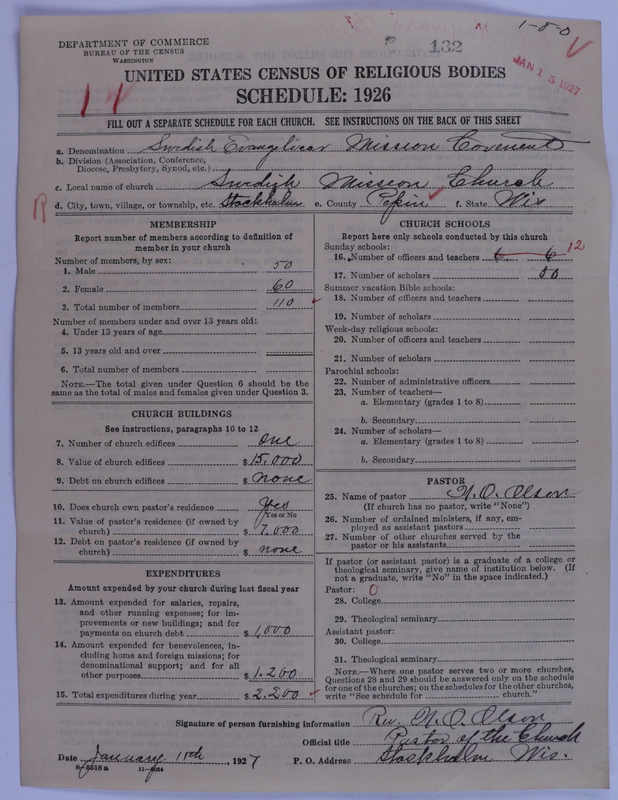 1-8-0
DEPARTMENT OF COMMERCE
BUREAU OF THE CENSUS
WASHINGTON
132
JAN 15 1927
UNITED STATES CENSUS OF RELIGIOUS BODIES
SCHEDULE: 1926
FILL OUT A SEPARATE SCHEDULE FOR EACH CHURCH. SEE INSTRUCTIONS ON THE BACK OF THIS SHEET
a. Denomination Swedish Evangelical Mission Covenent
b. Division (Association, Conference, Diocese, Presbytery, Synod, etc.)
c. Local name of church Swedish Mission Church
d. City, town, village, or township, etc. Stockholm e. County Pepin f. State Wis
MEMBERSHIP
Report number of members according to definition of member in your church
Number of members, by sex:
1. Male 50
2. Female 60
3. Total number of members 110
Number of members under and over 13 years old:
4. Under 13 years of age
5. 13 years old and over
6. Total number of members
NOTE.—The total given under Question 6 should be the same as the total of males and females given under Question 3.
CHURCH BUILDINGS
See instructions, paragraphs 10 to 12
7. Number of church edifices one
8. Value of church edifices $ 15,000
9. Debt on church edifices $ none
10. Does church own pastor's residence Yes
Yes or No
11. Value of pastor's residence (if owned by church) $ 7,000
12. Debt on pastor's residence (if owned by church) $ none
EXPENDITURES
Amount expended by your church during last fiscal year
13. Amount expended for salaries, repairs, and other running expenses; for improvements or new buildings; and for payments on church debt $ 1,000
14. Amount expended for benevolences, including home and foreign missions; for denominational support; and for all other purposes $ 1.200
15. Total expenditures during year $ 2.200
CHURCH SCHOOLS
Report here only schools conducted by this church
Sunday schools:
16. Number of officers and teachers 6 6 12
17. Number of scholars 50
Summer vacation Bible schools:
18. Number of officers and teachers
19. Number of scholars
Week-day religious schools:
20. Number of officers and teachers
21. Number of scholars
Parochial schools:
22. Number of administrative officers
23. Number of teachers—
a. Elementary (grades 1 to 8)
b. Secondary
24. Number of scholars—
a. Elementary (grades 1 to 8)
b. Secondary
PASTOR
25. Name of pastor N. O. Olson
(If church has no pastor, write "None")
26. Number of ordained ministers, if any, employed as assistant pastors
27. Number of other churches served by the pastor or his assistants
If pastor (or assistant pastor) is a graduate of a college or theological seminary, give name of institution below. (If not a graduate, write "No" in the space indicated.)
Pastor: 0
28. College
29. Theological seminary
Assistant pastor:
30. College
31. Theological seminary
NOTE.—Where one pastor serves two or more churches, Questions 28 and 29 should be answered only on the schedule for one of the churches; on the schedules for the other churches, write "See schedule for church."
Signature of person furnishing information Rev. N. O. Olson
Official title Pastor of the Church
Date January 11th, 1927 P. O. Address Stockholm Wis.
8-5518a 11-9034